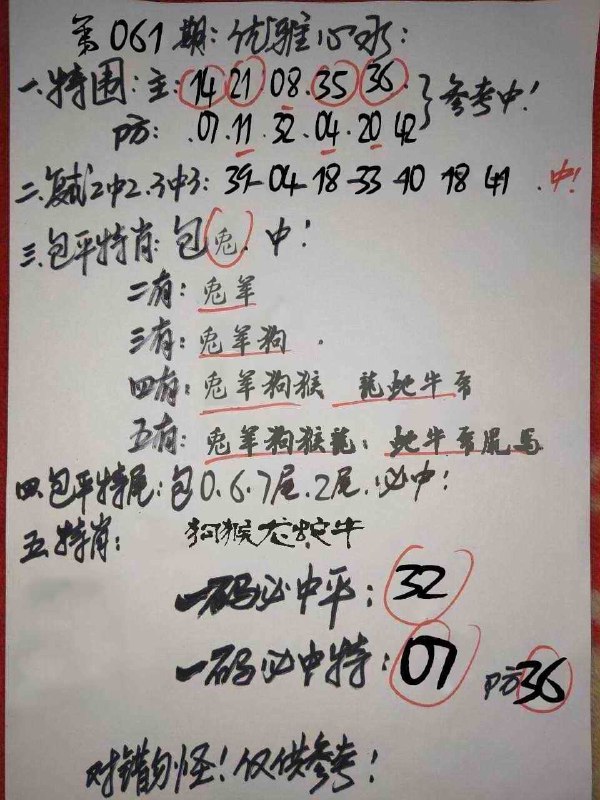 第061期：优雅心水：
一.特围：主：14 21 08 35 36 }参考中！
防：.07.11.32.04.20 42
二.复试2中2.3中3：39-04-18-33-40 18 41 .中！
三.包平特肖：包兔.中！
二有：兔羊
三有：兔羊狗.
四有：兔羊狗猴 龍蛇牛
五有：兔羊狗猴龍：蛇牛 馬
四.包平特尾：包0.6.7尾.2尾.必中！
五.特肖：狗猴龙蛇牛
一码必中平：32
一码必中特：07 防36
对错勿怪！仅供参考！